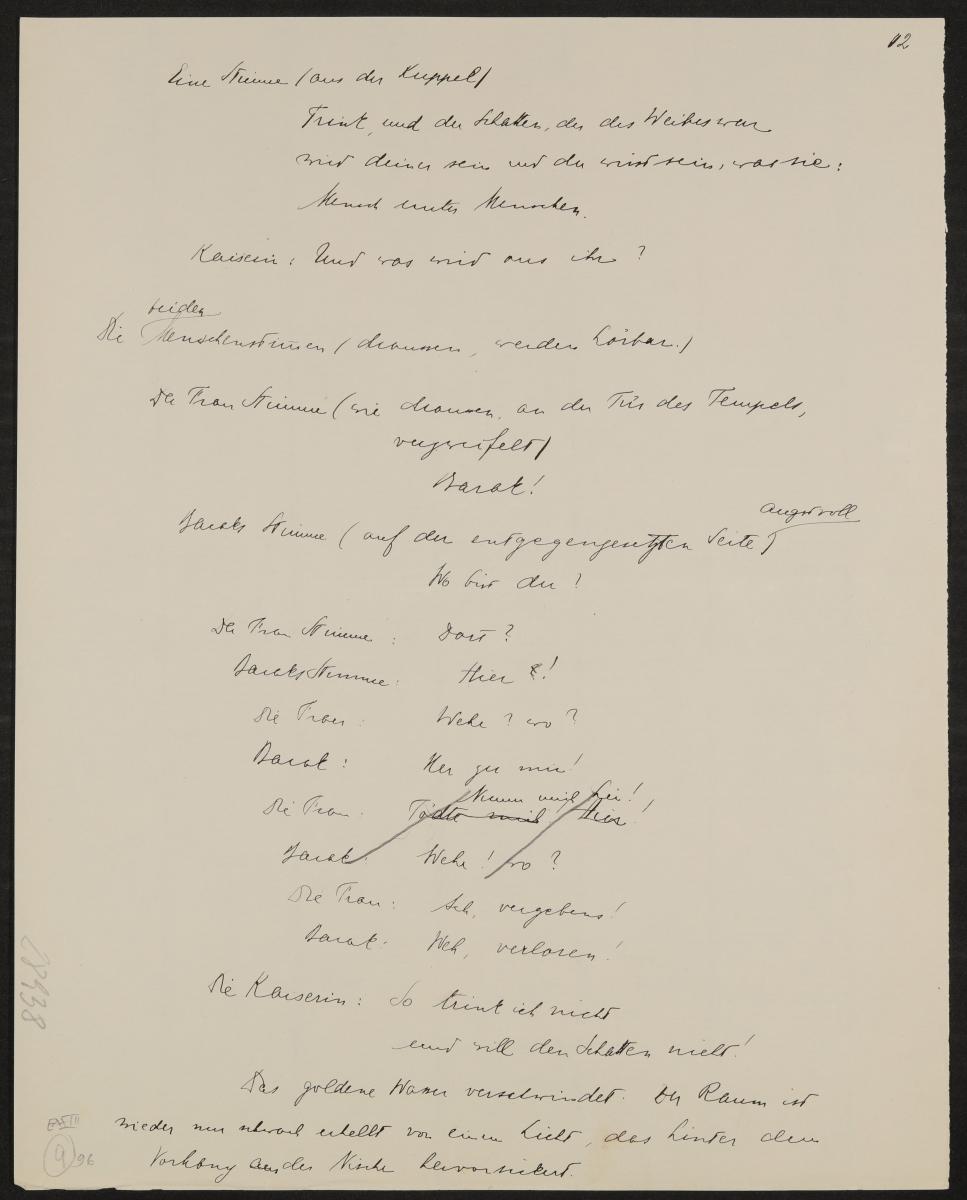 12
Eine Stimme (aus der Kuppel)
Trink, und der Schatten, der des Weibes war
wird deiner sein und du wirst sein, was sie:
Mensch unter Menschen.
Kaiserin: Und was wird aus ihr?
beiden
Die Menschenstimmen (draussen, werden hörbar.)
Der Frau Stimme (wie draussen, an der Tür des Tempels,
verzweifelt)
Barak!
angstvoll
Baraks Stimme (auf der entgegengesetzten Seite)
Wo bist du?
Der Frau Stimme: Dort?
Baraks Stimme: Hier!
Die Frau: Wehe? wo?
Barak: Her zu mir!
Nimm mich hin!
Die Frau: Tödte mich! Hier!
Barak: Wehe! wo?
Die Frau: Ach, vergebens!
Barak: Weh, verloren!
Die Kaiserin: So trink ich nicht
und will den Schatten nicht!
Das goldene Wasser verschwindet. Der Raum ist
wieder nur schwach erhellt von einem Licht, das hinter dem
Vorhang der Nische hervorsickert.
18938
EIII
9 96